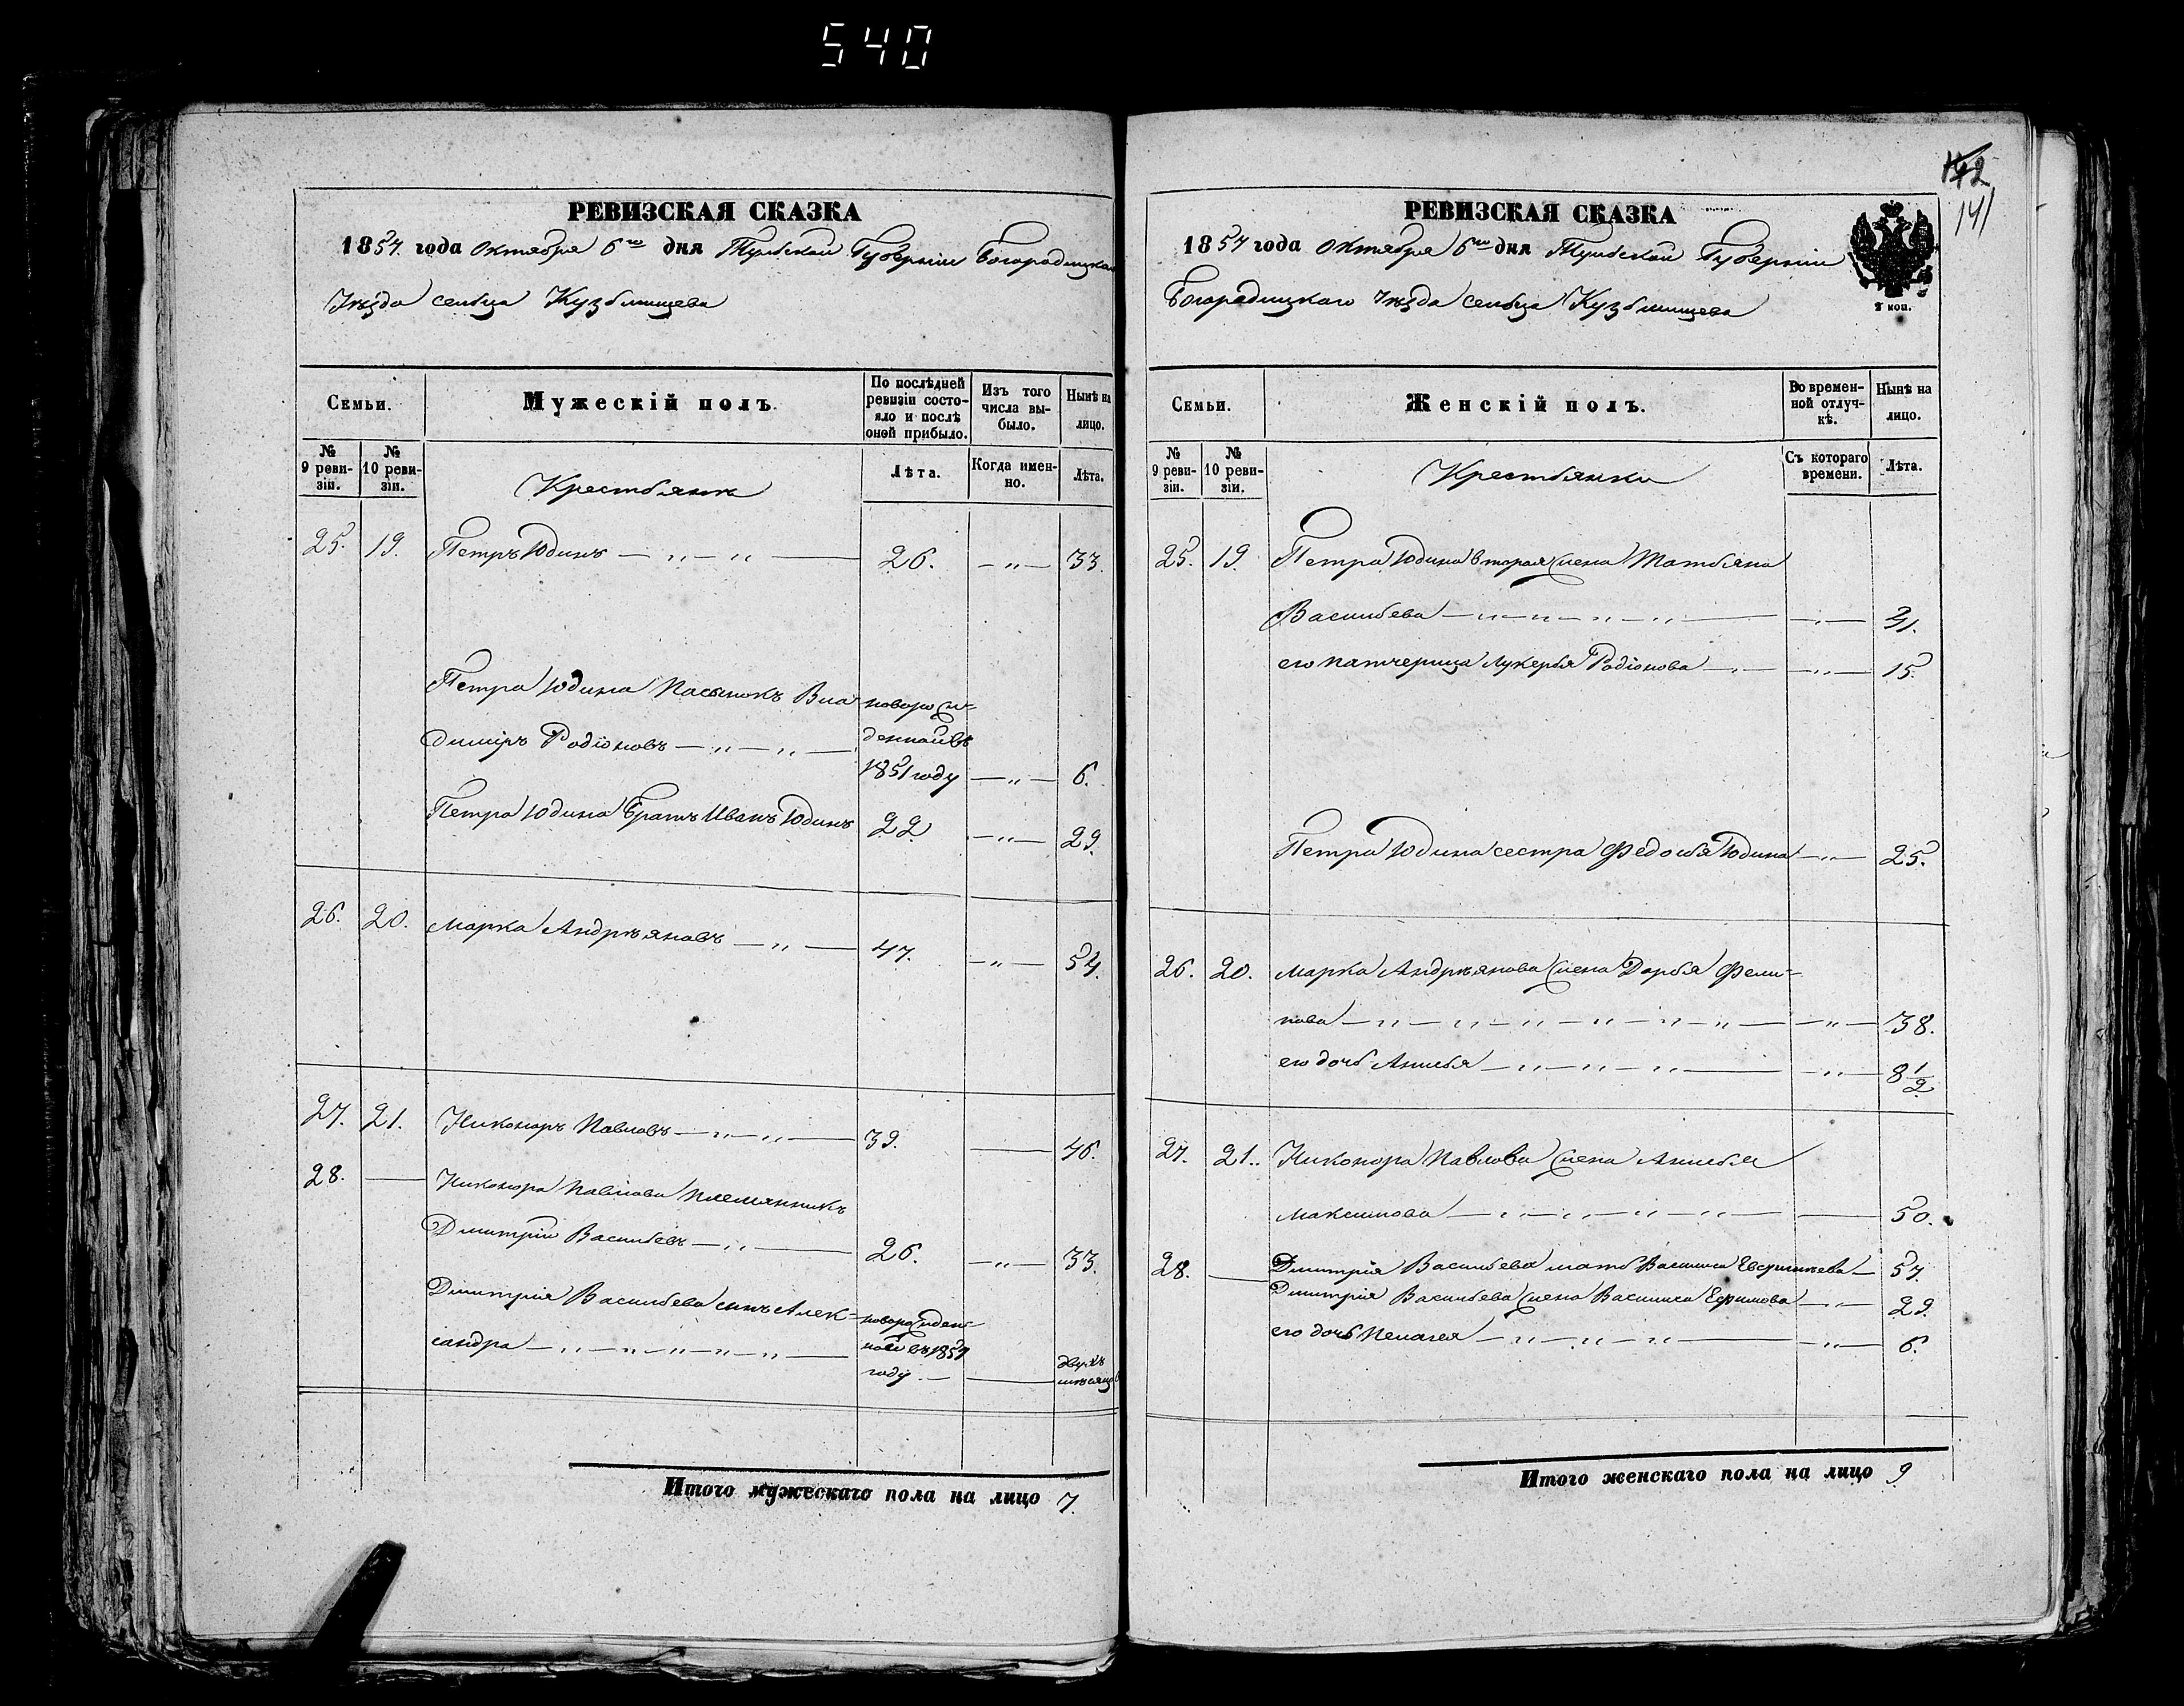 540
РЕВИЗСКАЯ СКАЗКА
1857. года Октября 6го дня Тульской Губерніи Богородицкаго
Уѣзда сельца Кузьмищева
Семьи.
Мужескій полъ.
По послѣдней ревизіи состояло и послѣ оной прибыло.
Изъ того числа выбыло.
Нынѣ на лицо.
№ 9 ревизіи.
№ 10 ревизіи.
Крестьяня
Лѣта.
Когда именно.
Лѣта.
25. 19. Петръ Юдинъ — „ — „ — 26. — „ — 33.
Петра Юдина пасынокъ Вла- новорож-
диміръ Родіоновъ — „ — „ — денной въ
1851 году — „ — 6.
Петра Юдина братъ Иванъ Юдинъ 22 — „ — 29.
26. 20. Марка Андрѣяновъ — „ — 47. — „ — 54.
27. 21. Никоноръ Павловъ — „ — „ — 39. — 46.
28. — Никонора Павлова племянникъ
Дмитрій Васильевъ — „ — 26. — „ — 33.
Дмитрія Васильева сынъ Алек- новорожден-
сандра — „ — „ — „ — „ — „ — ной въ 1857
году. — — двухъ мѣсяцов
Итого мужескаго пола на лицо 7.
142
141
РЕВИЗСКАЯ СКАЗКА
1857 года Октября 6го дня Тульской Губерніи
Богородицкаго Уѣзда сельца Кузьмищева
коп.
Семьи.
Женскій полъ.
Во временной отлучкѣ.
Нынѣ на лицо.
№ 9 ревизіи.
№ 10 ревизіи.
Крестьянки
Съ котораго времени.
Лѣта.
25. 19. Петра Юдина вторая жена Татьяна
Васильева — „ — „ — „ — „ — — „ — 31.
его патчерица Лукерья Родіонова — „ — — „ — 15.
Петра Юдина сестра Федосья Юдина — „ — 25.
26. 20. Марка Андрѣянова жена Дарья Фили-
пова — „ — „ — „ — „ — „ — „ — — „ — 38.
его дочь Анисья — „ — „ — „ — — „ — 8 1/2
27. 21. Никонора Павлова жена Анисья
Максимова — „ — „ — „ — „ — — 50.
28. — Дмитрія Васильева мать Василиса — 57.
Дмитрія Васильева жена Василиса Ефимова — „ — 29.
его дочь Пелагея — „ — „ — „ — „ — — „ — 6.
Итого женскаго пола на лицо 9